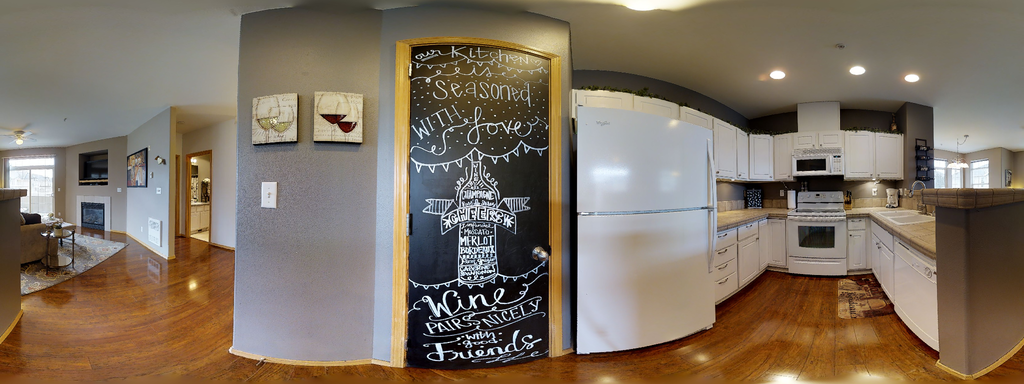 our Kitchen
is
seasoned
WITH
Love
CHAMPAGNE
CHEERS
MOSCATO
MERLOT
BORDEAUX
Wine
PAIRS NICELY
with
good
Friends